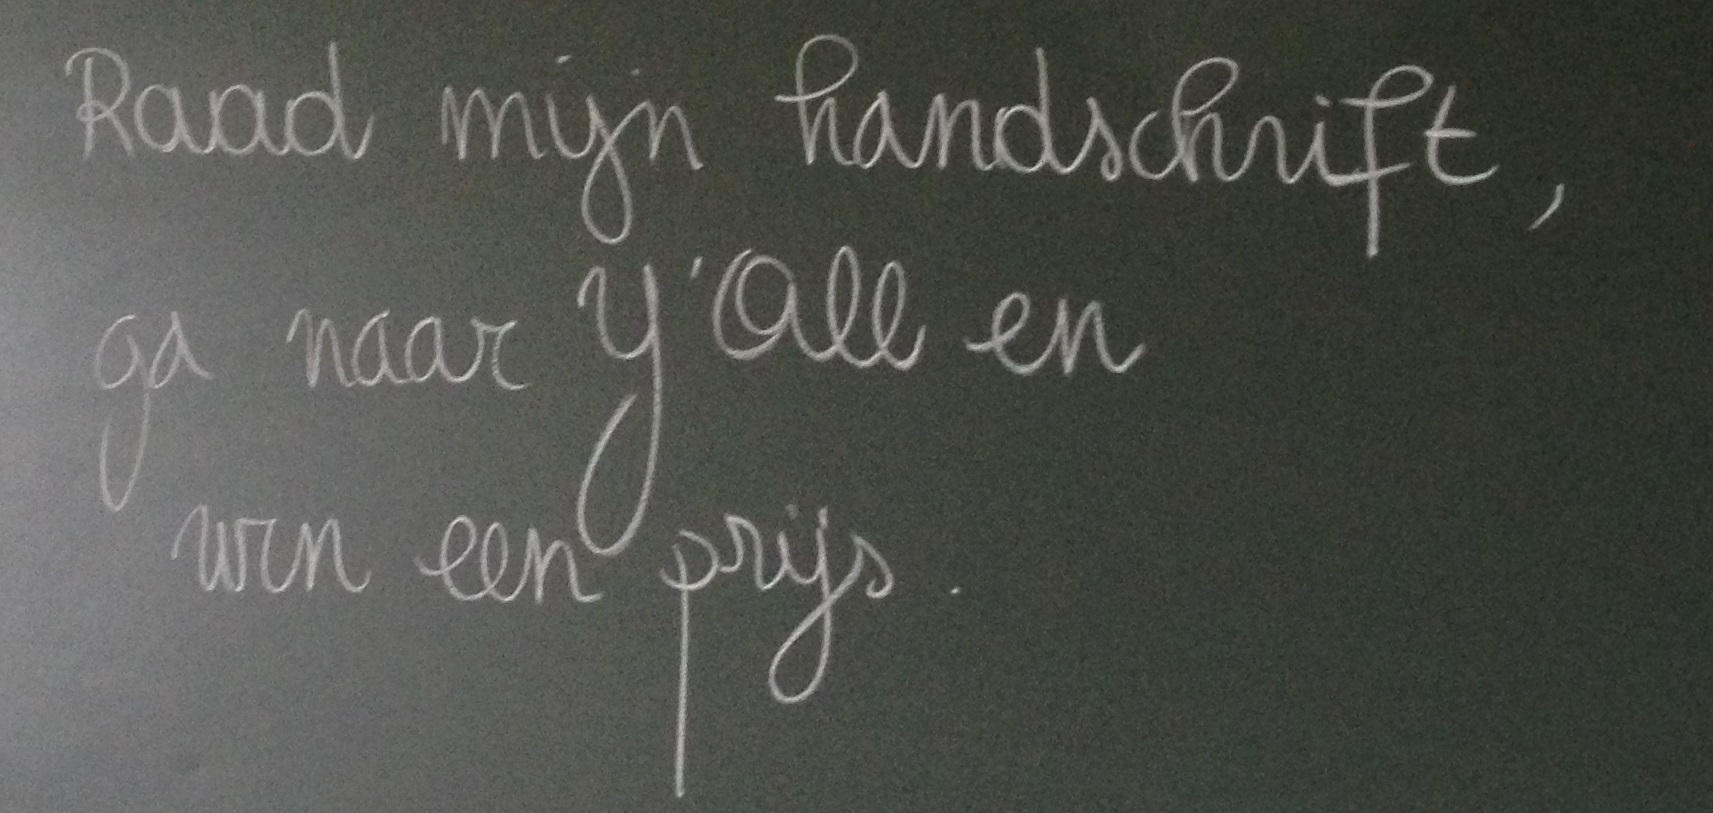 Raad mijn handschrift,
ga naar Y'All en
win een prijs.